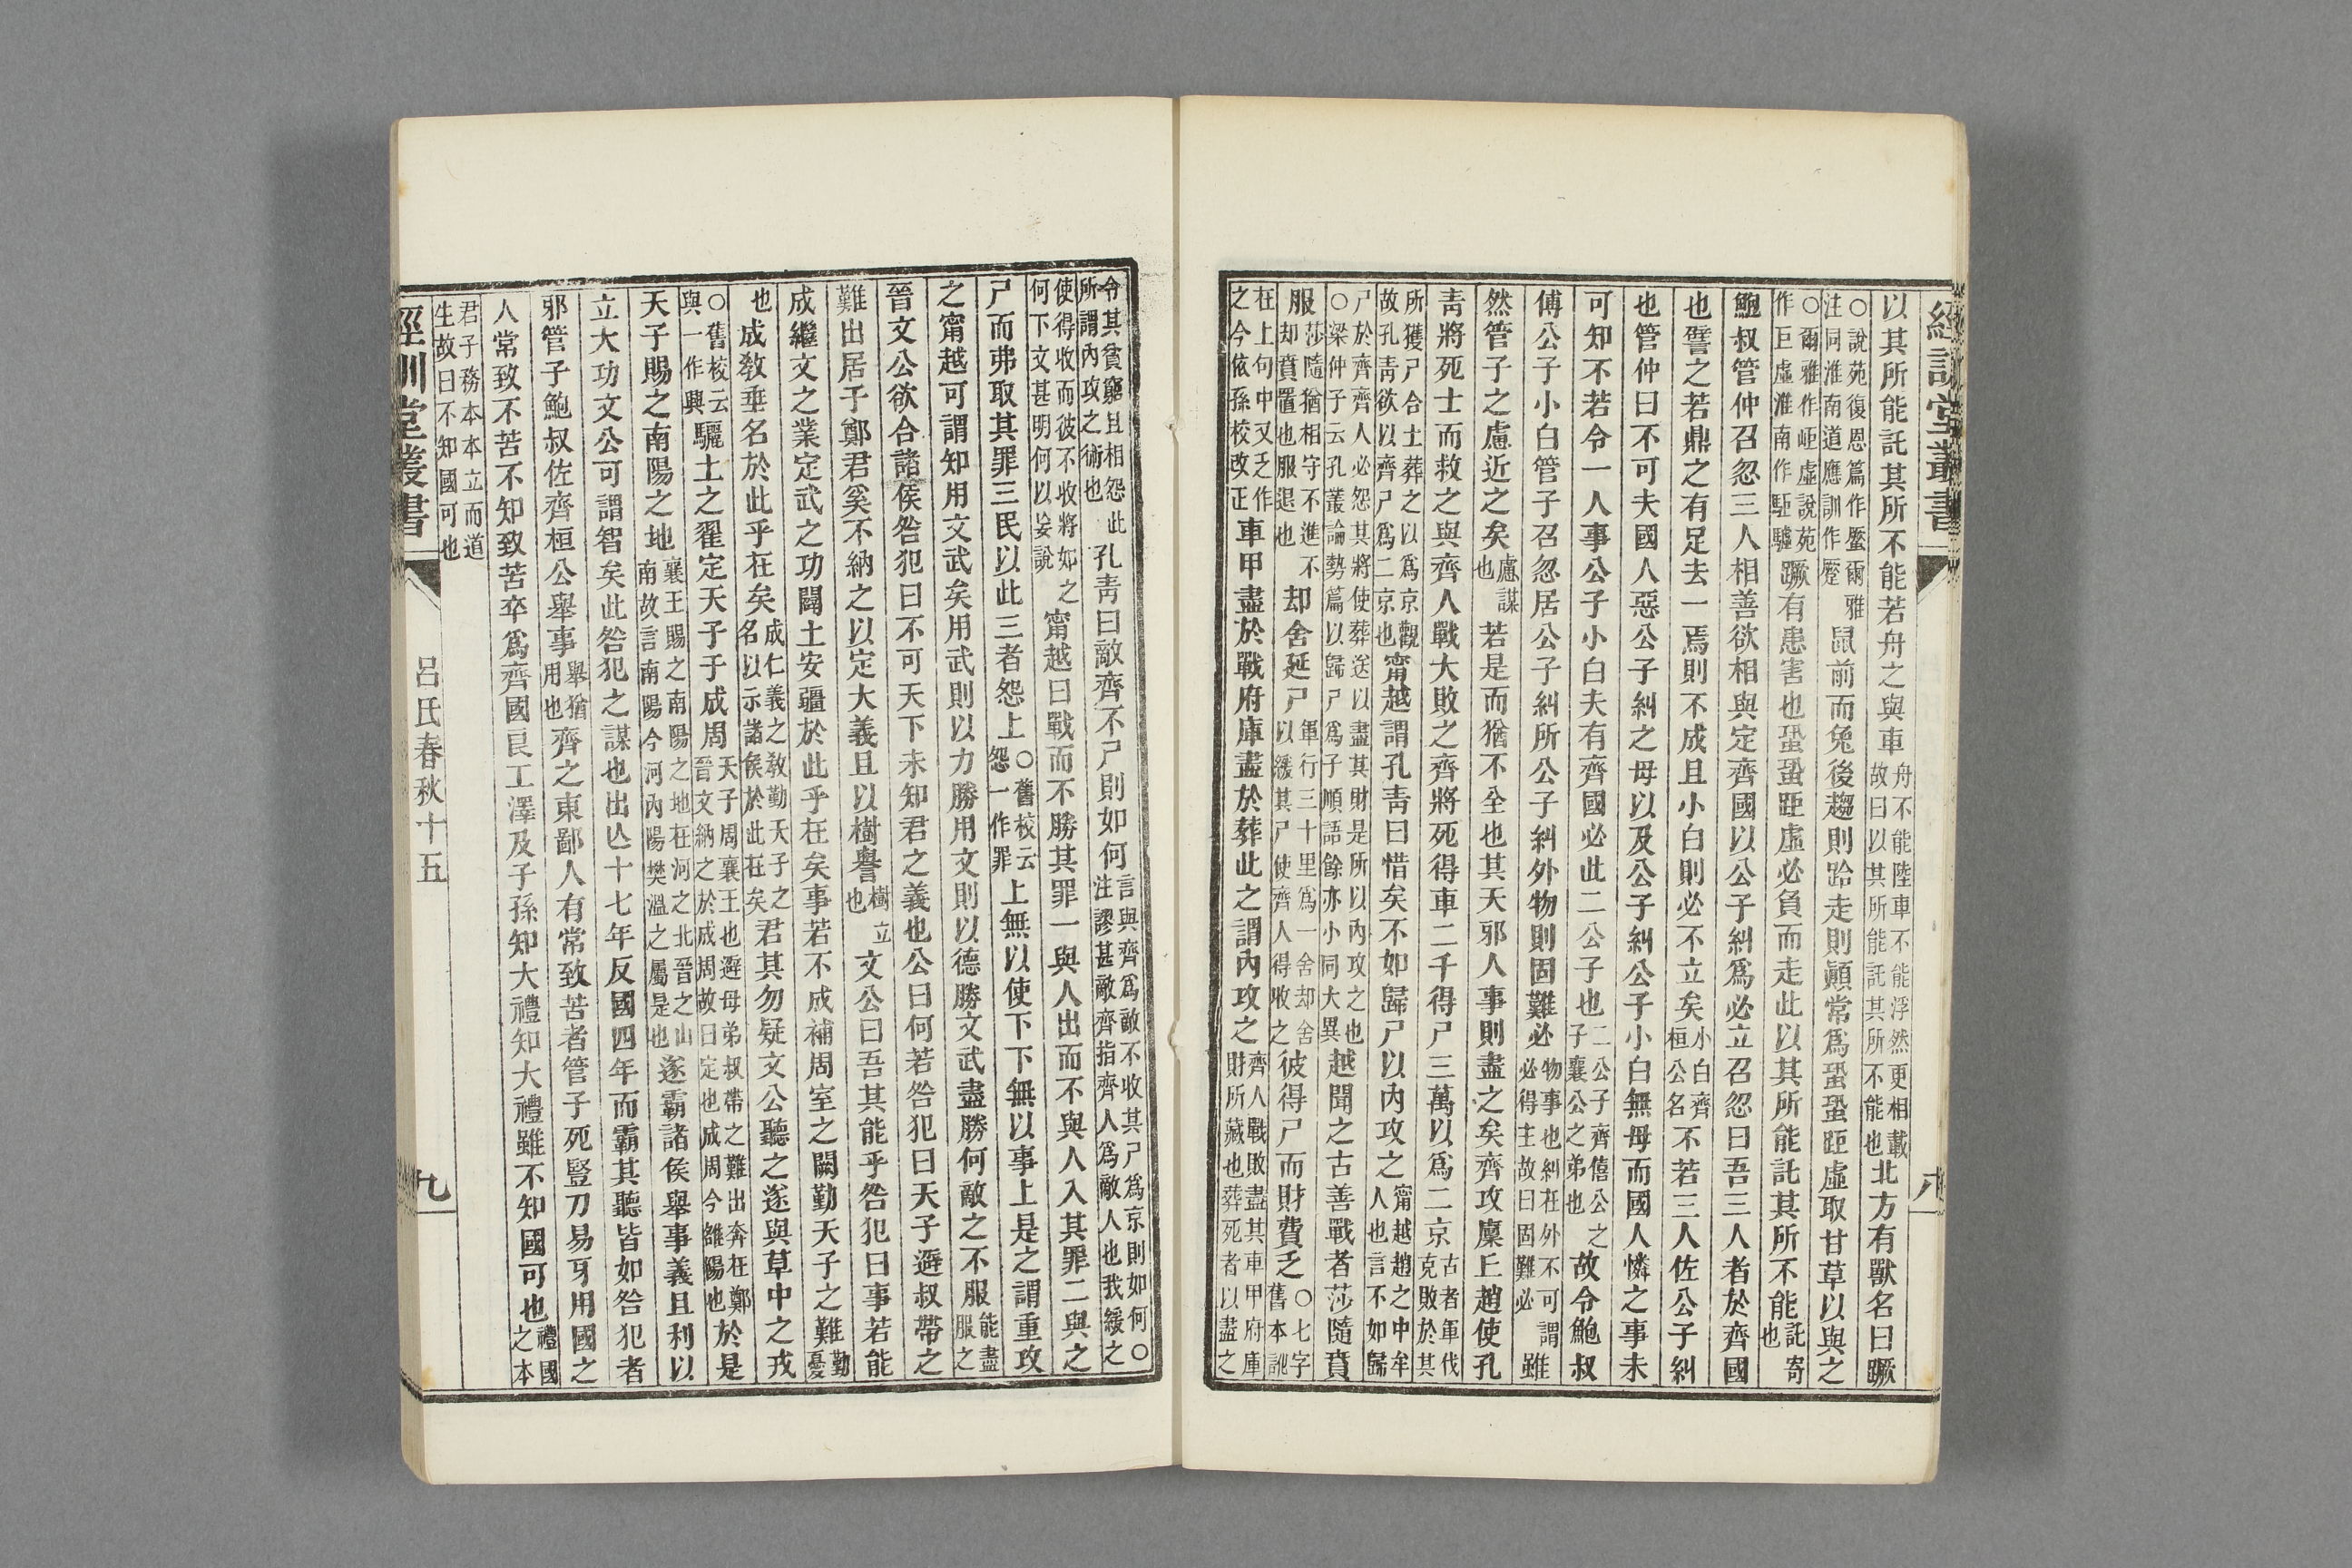 經訓堂叢書
八
以其所能託其所不能若舟之與車舟不能陸車不能浮然更相載故曰以其所能託其所不能也北方有獸名曰蹶
○說苑復恩篇作蟨爾雅注同淮南道應訓作蹷鼠前而兔後趨則跲走則顚常爲蛩蛩距虛取甘草以與之
○爾雅作岠虛說苑作巨虛淮南作駏驉蹶有患害也蛩蛩距虛必負而走此以其所能託其所不能託寄也
鮑叔管仲召忽三人相善欲相與定齊國以公子糾爲必立召忽曰吾三人者於齊國
也譬之若鼎之有足去一焉則不成且小白則必不立矣小白齊桓公名不若三人佐公子糾
也管仲曰不可夫國人惡公子糾之母以及公子糾公子小白無母而國人憐之事未
可知不若令一人事公子小白夫有齊國必此二公子也二公子齊僖公之子襄公之弟也故令鮑叔
傅公子小白管子召忽居公子糾所公子糾外物則固難必物事也糾在外不可謂雖必得主故曰固難必
然管子之慮近之矣慮謀也若是而猶不全也其天邪人事則盡之矣齊攻廩丘趙使孔
靑將死士而救之與齊人戰大敗之齊將死得車二千得尸三萬以爲二京古者軍伐克敗於其
所獲尸合土葬之以爲京觀故孔靑欲以齊尸爲二京也甯越謂孔靑曰惜矣不如歸尸以內攻之甯越趙之中牟人也言不如歸
尸於齊齊人必怨其將使葬送以盡其財是所以內攻之也○梁仲子云孔叢論勢篇以歸尸爲子順語餘亦小同大異越聞之古善戰者莎隨賁
服莎隨猶相守不進不却賁置也服退也却舍延尸軍行三十里爲一舍却舍以緩其尸使齊人得收之彼得尸而財費乏○七字舊本訛
在上句中又乏作之今依孫校改正車甲盡於戰府庫盡於葬此之謂內攻之齊人戰敗盡其車甲府庫財所藏也葬死者以盡之
令其貧窮且相怨此所謂內攻之術也孔靑曰敵齊不尸則如何言與齊爲敵不收其尸爲京則如何○注謬甚敵齊指齊人爲敵人也我緩之
使得收而彼不收將如之何下文甚明何以妄說甯越曰戰而不勝其罪一與人出而不與人入其罪二與之
尸而弗取其罪三民以此三者怨上○舊校云怨一作罪上無以使下下無以事上是之謂重攻
之甯越可謂知用文武矣用武則以力勝用文則以德勝文武盡勝何敵之不服能盡服之
晉文公欲合諸侯咎犯曰不可天下未知君之義也公曰何若咎犯曰天子避叔帶之
難出居于鄭君奚不納之以定大義且以樹譽樹立也文公曰吾其能乎咎犯曰事若能
成繼文之業定武之功闢土安疆於此乎在矣事若不成補周室之闕勤天子之難勤憂
也成敎垂名於此乎在矣成仁義之敎勤天子之名以示諸侯於此在矣君其勿疑文公聽之遂與草中之戎
○舊校云與一作興驪土之翟定天子于成周天子周襄王也避母弟叔帶之難出奔在鄭晉文納之於成周故曰定也成周今雒陽也於是
天子賜之南陽之地襄王賜之南陽之地在河之北晉之山南故言南陽今河內陽樊溫之屬是也遂霸諸侯舉事義且利以
立大功文公可謂智矣此咎犯之謀也出亾十七年反國四年而霸其聽皆如咎犯者
邪管子鮑叔佐齊桓公舉事舉猶用也齊之東鄙人有常致苦者管子死豎刀易牙用國之
人常致不苦不知致苦卒爲齊國良工澤及子孫知大禮知大禮雖不知國可也禮國之本
君子務本本立而道生故曰不知國可也
經訓堂叢書
呂氏春秋十五
九